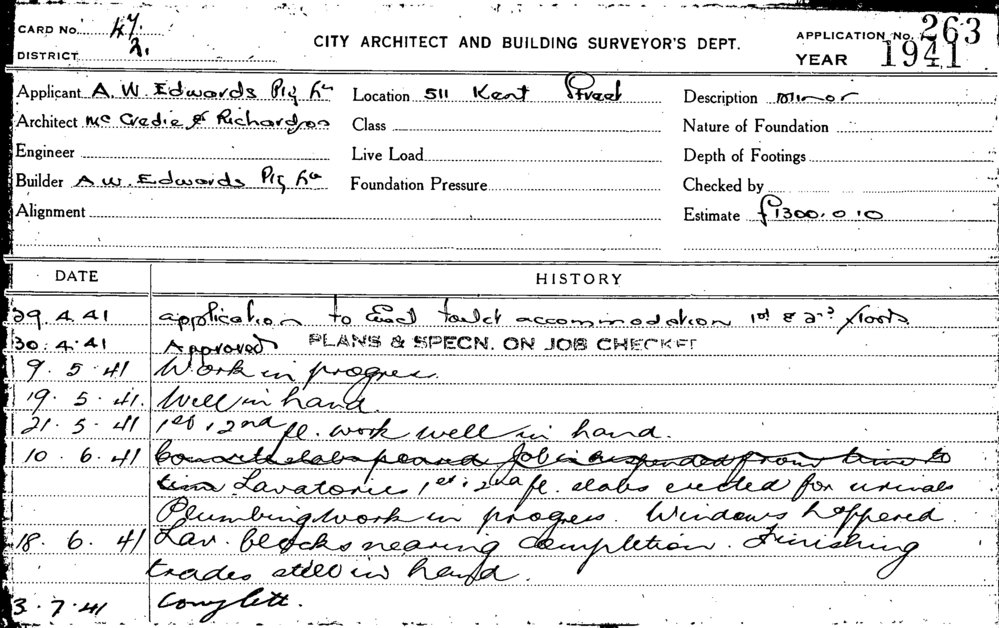 CARD No. 47.
DISTRICT 2.
CITY ARCHITECT AND BUILDING SURVEYOR'S DEPT.
APPLICATION No. 263
YEAR 1941
Applicant A. W. Edwards Pty Ltd
Location 511 Kent Street
Description Minor
Architect Mc Credie & Richardson
Class
Nature of Foundation
Engineer
Live Load
Depth of Footings
Builder A. W. Edwards Pty Ltd
Foundation Pressure
Checked by
Alignment
Estimate £1300.0.0
DATE HISTORY
29. 4. 41 application to Erect toilet accommodation 1st & 2nd floors.
30. 4. 41 Approved PLANS & SPECN. ON JOB CHECKED
9. 5. 41 Work in progress.
19. 5. 41. Well in hand.
21. 5. 41 1st, 2nd fl. work well in hand.
10. 6. 41 Concrete slabs poured Job is suspended from time to
time Lavatories 1st, 2nd fl. slabs erected for urinals
Plumbing work in progress. Windows hoppered.
18. 6. 41 Lav. blocks nearing completion. Finishing
trades still in hand.
3. 7. 41 Complete.